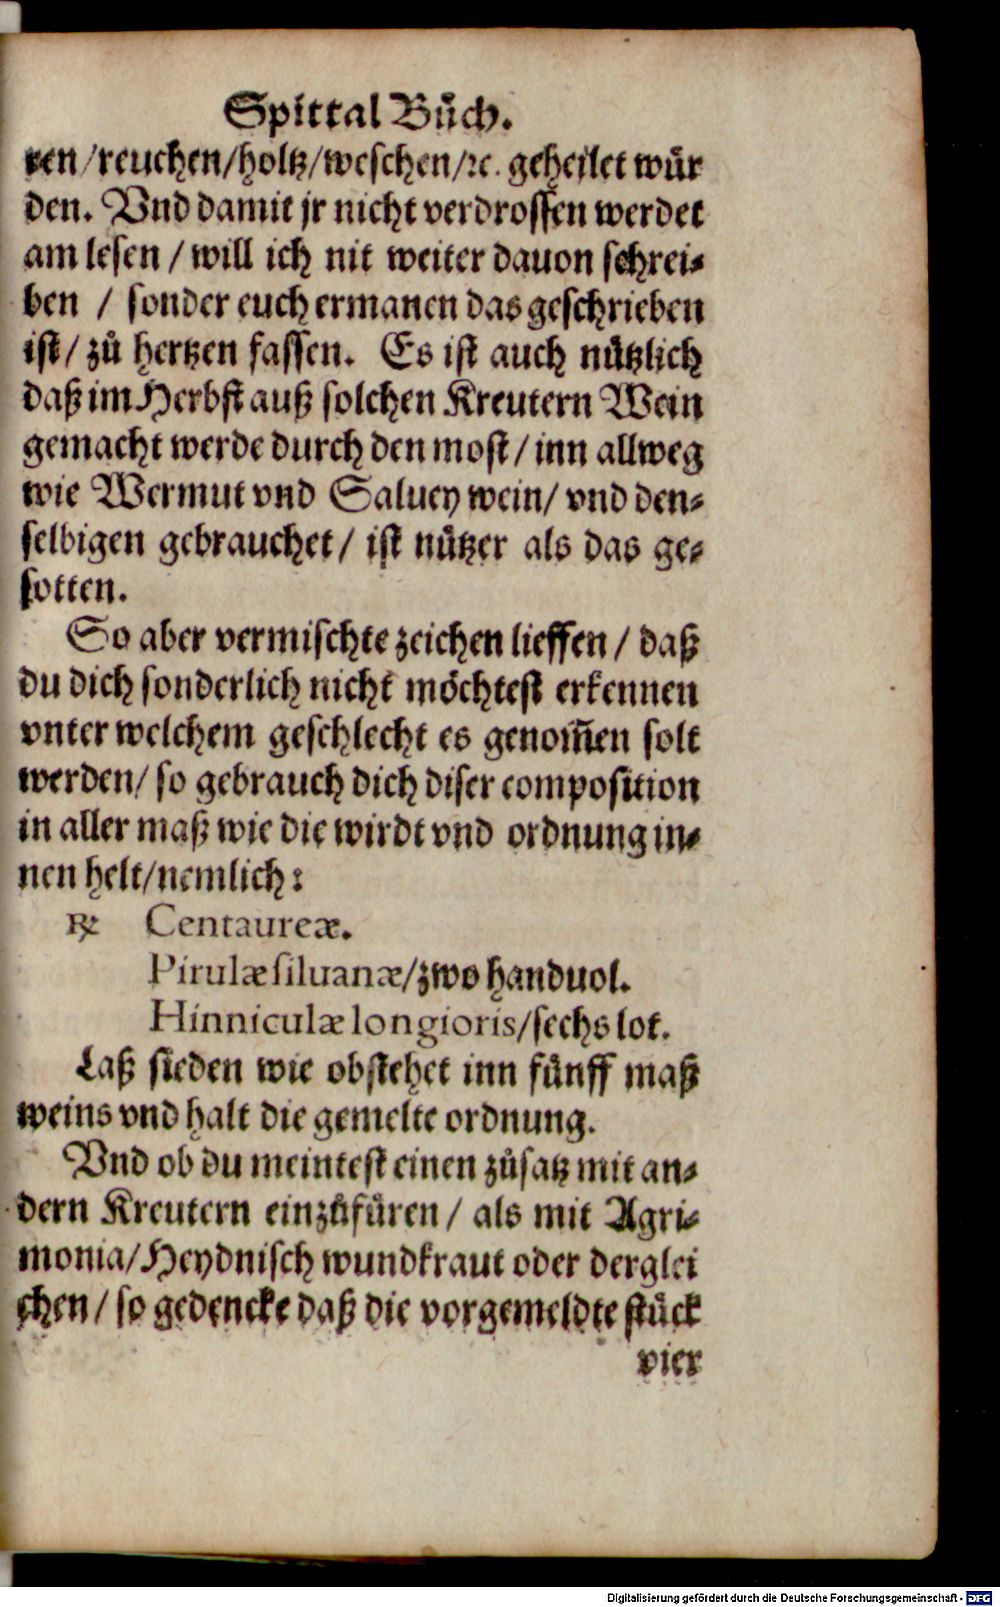 Spittal Bůch.
ren/reuchen/holtz/weschen/ꝛc. geheilet wůr
den. Vnd damit jr nicht verdrossen werdet
am lesen / will ich nit weiter dauon schrei⸗
ben / sonder euch ermanen das geschrieben
ist/ zů hertzen fassen. Es ist auch nůtzlich
daß im Herbst auß solchen Kreutern Wein
gemacht werde durch den most/ inn allweg
wie Wermut vnd Saluey wein/ vnd den⸗
selbigen gebrauchet/ ist nůtzer als das ge⸗
sotten.
So aber vermischte zeichen lieffen/ daß
du dich sonderlich nicht möchtest erkennen
vnter welchem geschlecht es genom̃en solt
werden/ so gebrauch dich diser composition
in aller maß wie die wirdt vnd ordnung in⸗
nen helt/nemlich:
℞ Centaureæ.
Pirulæ siluanæ/zwo handuol.
Hinniculæ longioris/sechs lot.
Laß sieden wie obstehet inn fůnff maß
weins vnd halt die gemelte ordnung.
Vnd ob du meintest einen zůsatz mit an⸗
dern Kreutern einzůfůren/ als mit Agri⸗
monia/Heydnisch wundkraut oder derglei
chen/ so gedencke daß die vorgemeldte stůck
vier
Digitalisierung gefördert durch die Deutsche Forschungsgemeinschaft - DFG